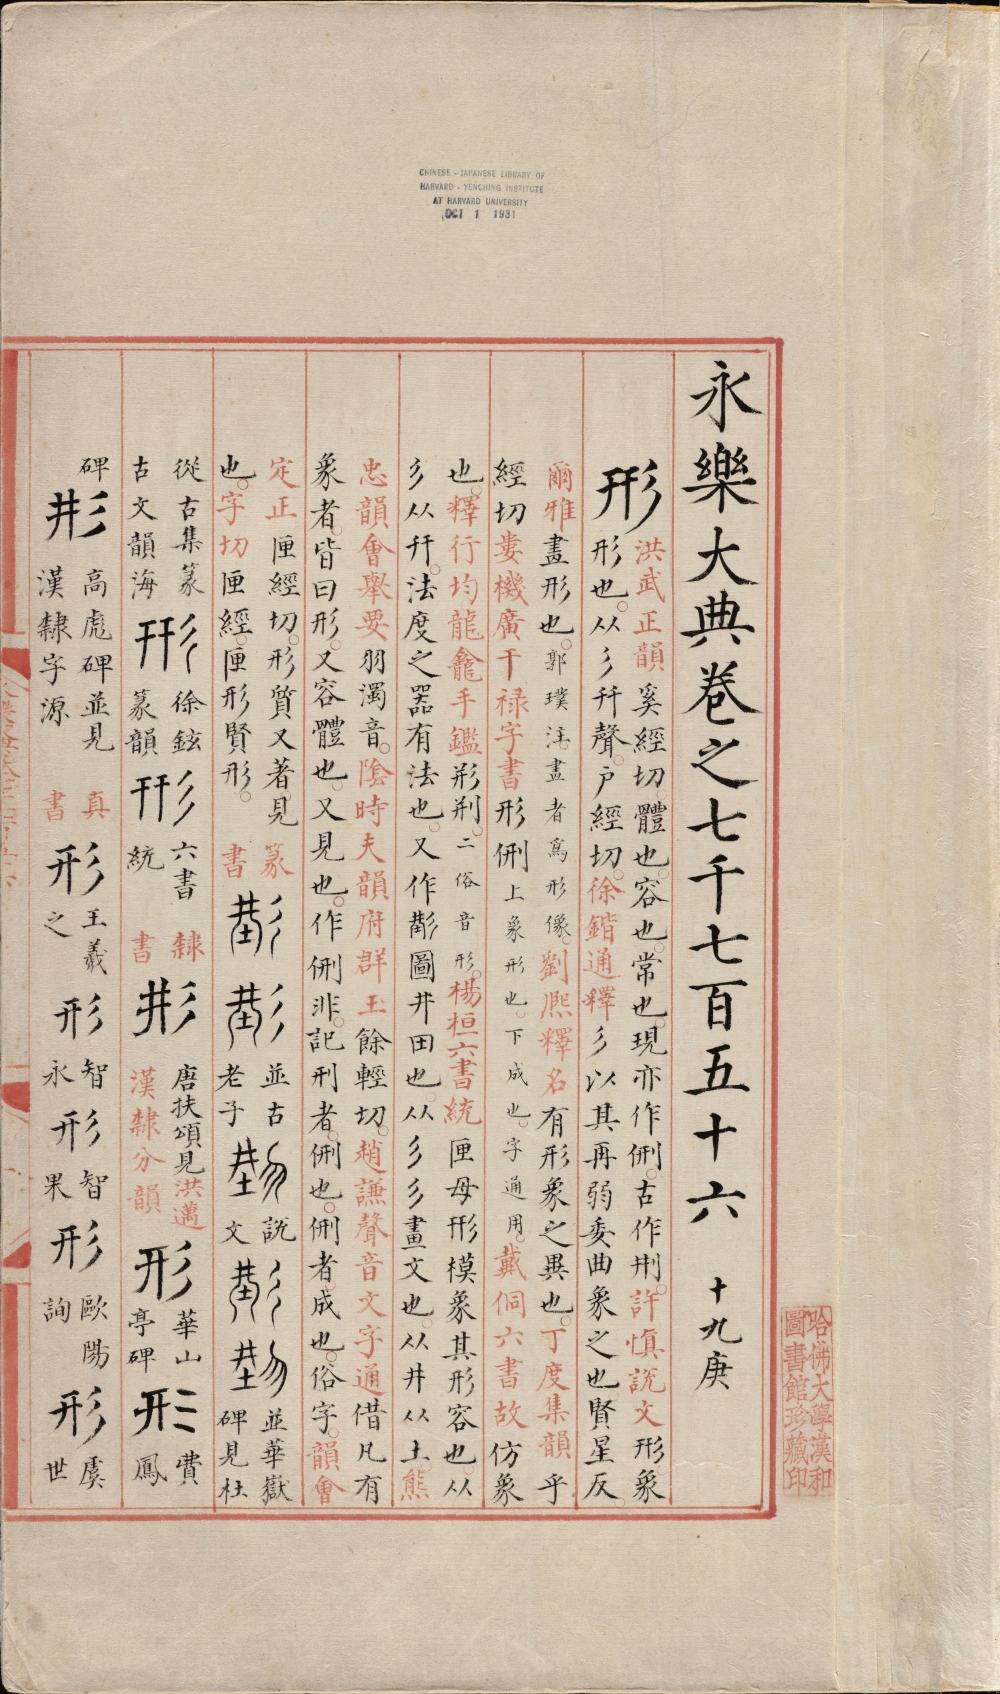 CHINESE - JAPANESE LIBRARY OF
HARVARD - YENCHING INSTITUTE
AT HARVARD UNIVERSITY
OCT 1 1931
永樂大典卷之七千七百五十六 十九庚
形
洪武正韻奚經切。體也。容也。常也。現亦作侀。古作㓝。許慎說文形象
形也。从彡幵聲。戶經切。徐鍇通釋彡以其再弱委曲象之也賢星反
爾雅畫形也。郭璞注。畫者為形像。劉熈釋名有形象之異也。丁度集韻乎
經切婁機廣干禄字書形侀上象形也。下成也。字通用。戴侗六書故仿象
也。釋行均龍龕手鑑形㓝。二俗音形。楊桓六書統匣母形模象其形容也。从
彡从幵。法度之器有法也。又作圖井田也。从彡彡畫文也。从井从土。熊
忠韻會舉要羽濁音。陰時夫韻府群玉餘輕切。趙謙聲音文字通借凡有
象者。皆曰形。又容體也。又見也。作侀非。記刑者。侀也。侀者。成也。俗字。韻會
定正匣經切。形質又著見
也。字切匣經。匣形賢形。
篆書
並古老子
說文
並華嶽碑見杜
從古集篆古文韻海
形
徐鉉篆韻
形
六書統
隸書
形
唐扶頌見洪邁漢隸分韻
形
華山亭碑
形
費鳳
碑
形
高彪碑並見漢隸字源
真書
形
王羲之
形
智永
形
智果
形
歐陽詢
形
虞世
哈佛大學漢和
圖書館珍藏印